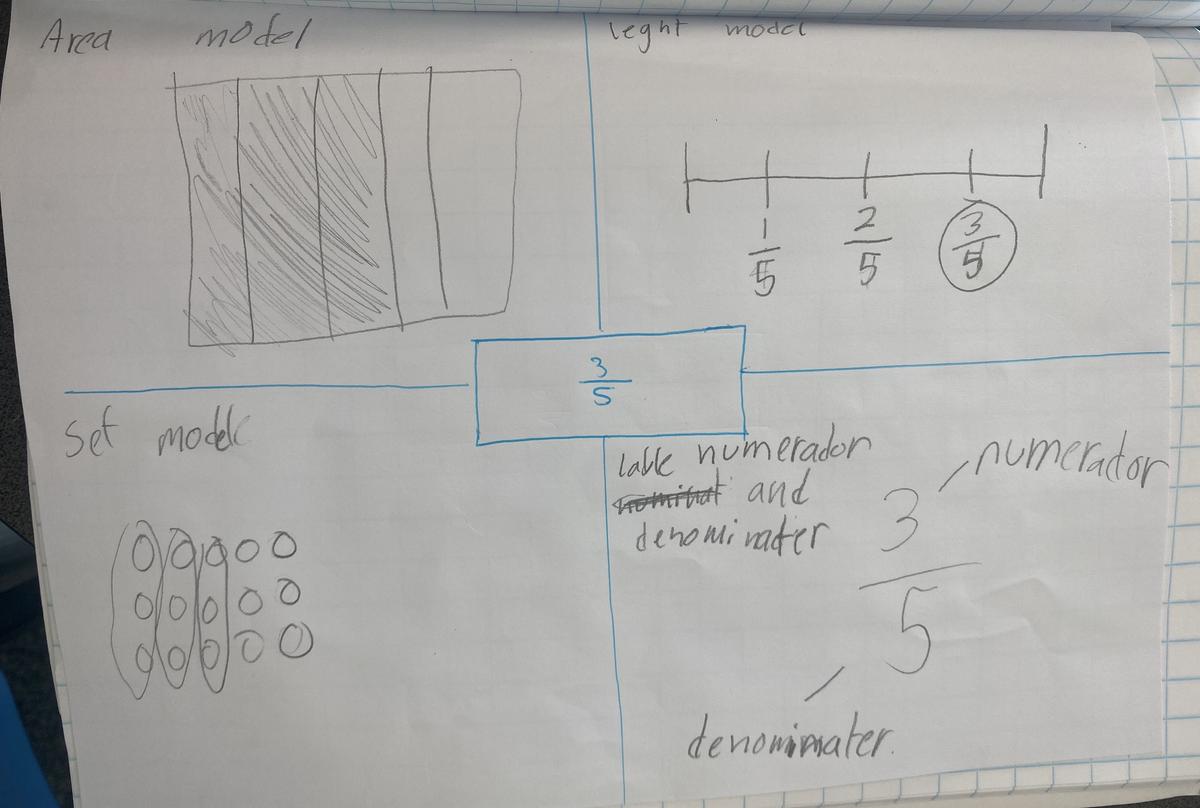 Area model
leght model
1/5 2/5 3/5
3/5
Set model
lable numerador
and
denominater
numerador
3/5
denominater.